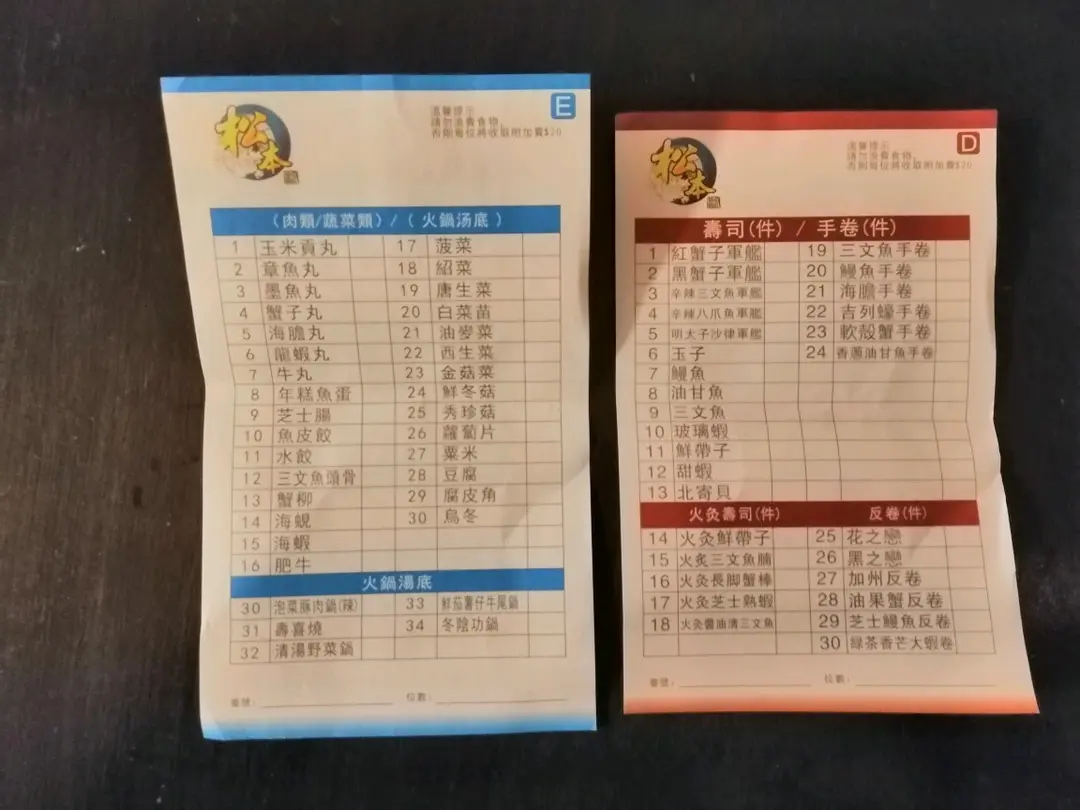 松本
溫馨提示
請勿浪費食物,
否則每位將收取附加費$20
E
(肉類/蔬菜類) / ( 火鍋汤底 )
1 玉米貢丸 17 菠菜
2 章魚丸 18 紹菜
3 墨魚丸 19 唐生菜
4 蟹子丸 20 白菜苗
5 海膽丸 21 油麥菜
6 龍蝦丸 22 西生菜
7 牛丸 23 金菇菜
8 年糕魚蛋 24 鮮冬菇
9 芝士腸 25 秀珍菇
10 魚皮餃 26 蘿蔔片
11 水餃 27 粟米
12 三文魚頭骨 28 豆腐
13 蟹柳 29 腐皮角
14 海蜆 30 烏冬
15 海蝦
16 肥牛
火鍋湯底
30 泡菜豚肉鍋(辣) 33 鮮茄薯仔牛尾鍋
31 壽喜燒 34 冬陰功鍋
32 清湯野菜鍋
單號: 位數:
松本
溫馨提示
請勿浪費食物,
否則每位將收取附加費$20
D
壽司(件) / 手卷(件)
1 紅蟹子軍艦 19 三文魚手卷
2 黑蟹子軍艦 20 鰻魚手卷
3 辛辣三文魚軍艦 21 海膽手卷
4 辛辣八爪魚軍艦 22 吉列蠔手卷
5 明太子沙律軍艦 23 軟殼蟹手卷
6 玉子 24 香蔥油甘魚手卷
7 鰻魚
8 油甘魚
9 三文魚
10 玻璃蝦
11 鮮帶子
12 甜蝦
13 北寄貝
火灸壽司(件) 反卷(件)
14 火灸鮮帶子 25 花之戀
15 火炙三文魚腩 26 黑之戀
16 火灸長脚蟹棒 27 加州反卷
17 火灸芝士熟蝦 28 油果蟹反卷
18 火灸醬油漬三文魚 29 芝士鰻魚反卷
30 綠茶香芒大蝦卷
單號: 位數: